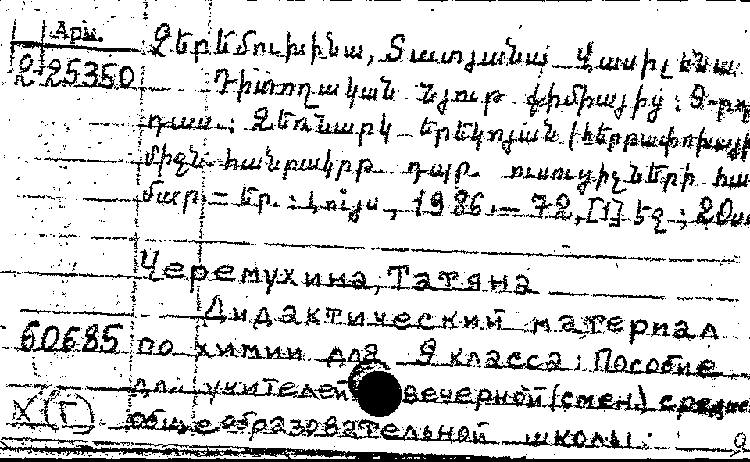 Арм.
2-25350
Չերեմուխինա, Տատյանա Վասիլևնա
Դիտողական նյութ քիմիայից : 9-րդ
դաս : Ձեռնարկ երեկոյան (հերթափոխային)
միջն. հանրակրթ. դպր. ուսուցիչների հա
մար. — Եր. : Լույս, 1986. — 72, [1] էջ ; 20
Черемухина, Татяна
Дидактический материал
60685 по химии для 9 класса : Пособие
для учителей вечерной (смен.) средне
X (Г) общеобразовательной школы.